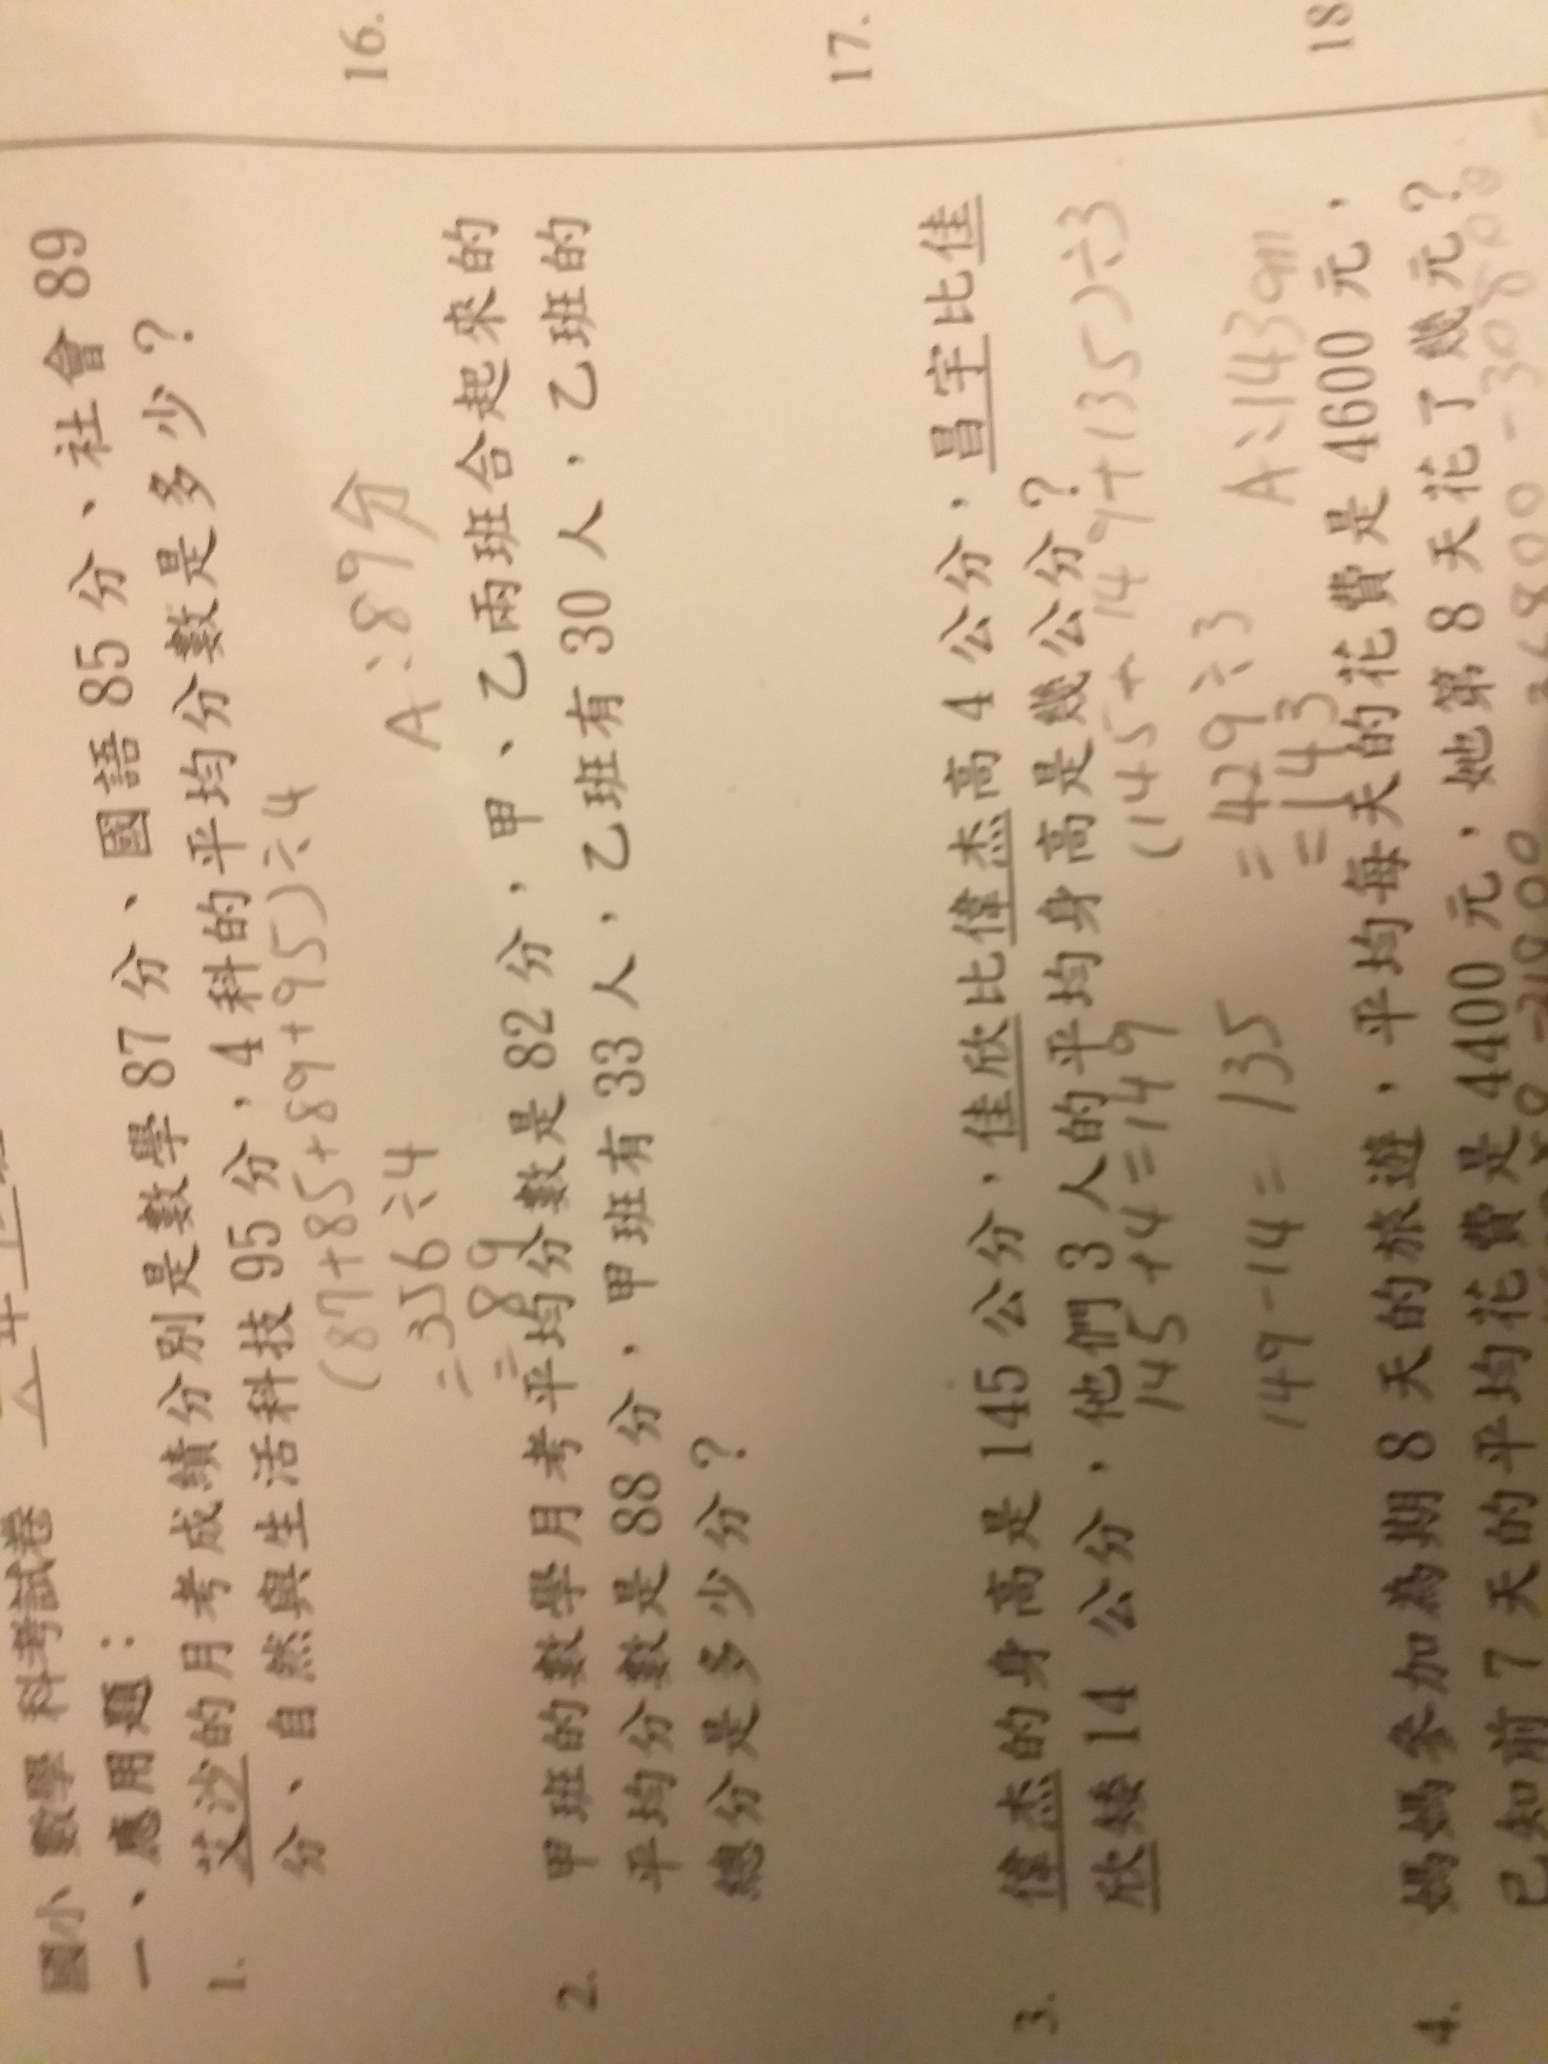 國小 數學 科考試卷
一、應用題：
1. 艾沙的月考成績分別是數學 87 分、國語 85 分、社會 89
分、自然與生活科技 95 分，4 科的平均分數是多少？
(87+85+89+95)÷4
=356÷4
=89
A:89分
2. 甲班的數學月考平均分數是 82 分，甲、乙兩班合起來的
平均分數是 88 分，甲班有 33 人，乙班有 30 人，乙班的
總分是多少分？
3. 偉杰的身高是 145 公分，佳欣比偉杰高 4 公分，昌宇比佳
欣矮 14 公分，他們 3 人的平均身高是幾公分？
145+4=149
(145+149+135)÷3
149-14=135
=429÷3
=143
A:143cm
4. 媽媽參加為期 8 天的旅遊，平均每天的花費是 4600 元，
已知前 7 天的平均花費是 4400 元，她第 8 天花了幾元？
36800-30800
16.
17.
18